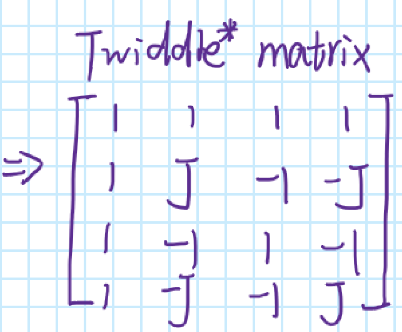 Twiddle* matrix
1 1 1 1
⇒ 1 J -1 -J
1 -1 1 -1
1 -J -1 J